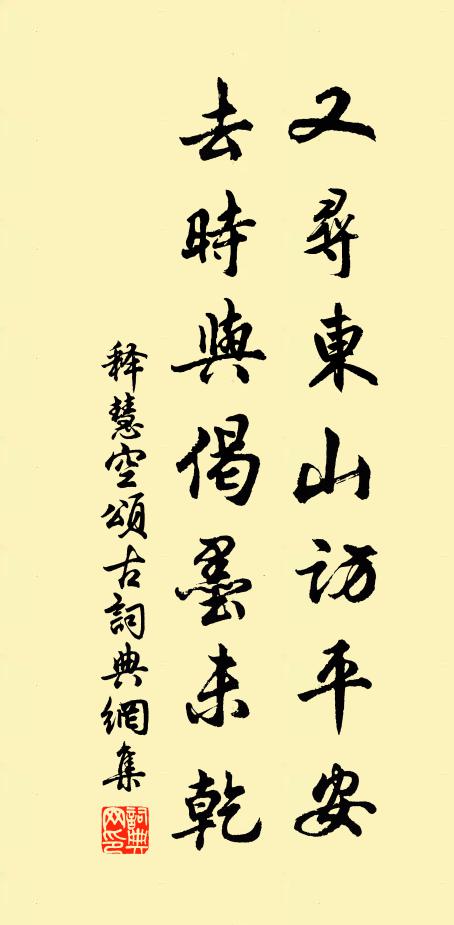 又尋東山訪平安
去時與偈墨未乾
释慧空頌古詞典網集
詞典网印